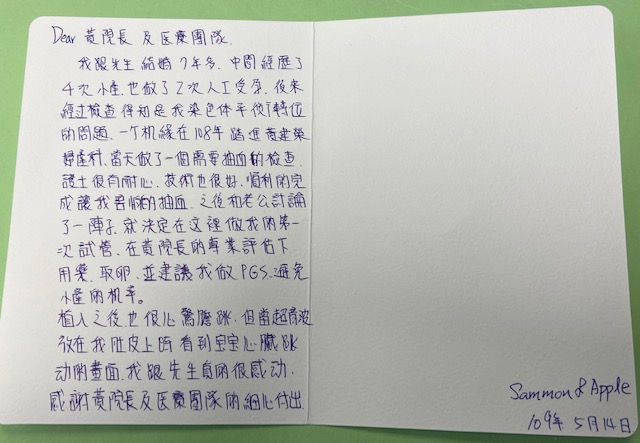 Dear 黃院長 及 医療團隊.
我跟先生 結婚 7年多. 中間經歷了
4次小產. 也做了 2次人工受孕. 後來
經过檢查 得知是我染色体平衡轉位
的問題. 一个机緣在108年 踏進黃建榮
婦產科. 當天做了一個需要抽血的檢查.
護士很有耐心. 技術也很好. 順利的完
成讓我 的抽血. 之後和老公討論
了一陣子. 就決定在这裡做我的第一
次試管. 在黃院長的專業評估下
用藥. 取卵. 並建議我做PGS. 避免
小產的机率。
植入之後. 也很心驚膽跳. 但當超音波
放在我肚皮上時 看到宝宝心臟跳
动的畫面. 我跟先生真的很感动.
感謝黃院長及医療團隊的細心付出
Sammon & Apple
109年 5月14日